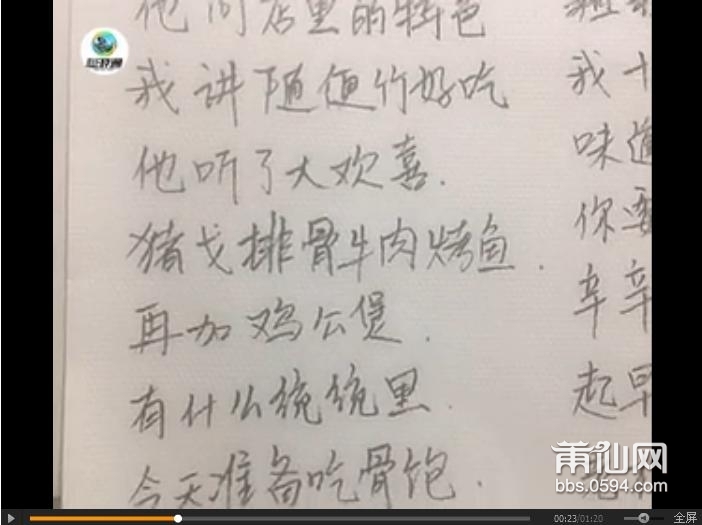 他问店里的特色
我讲随便竹好吃
他听了大欢喜.
猪戈排骨牛肉烤鱼.
再加鸡公煲.
有什么统统里.
今天准备吃骨饱.
我十
味道
你要
辛辛
起早
莆仙网
bbs.0594.com
00:23/01:20
全屏